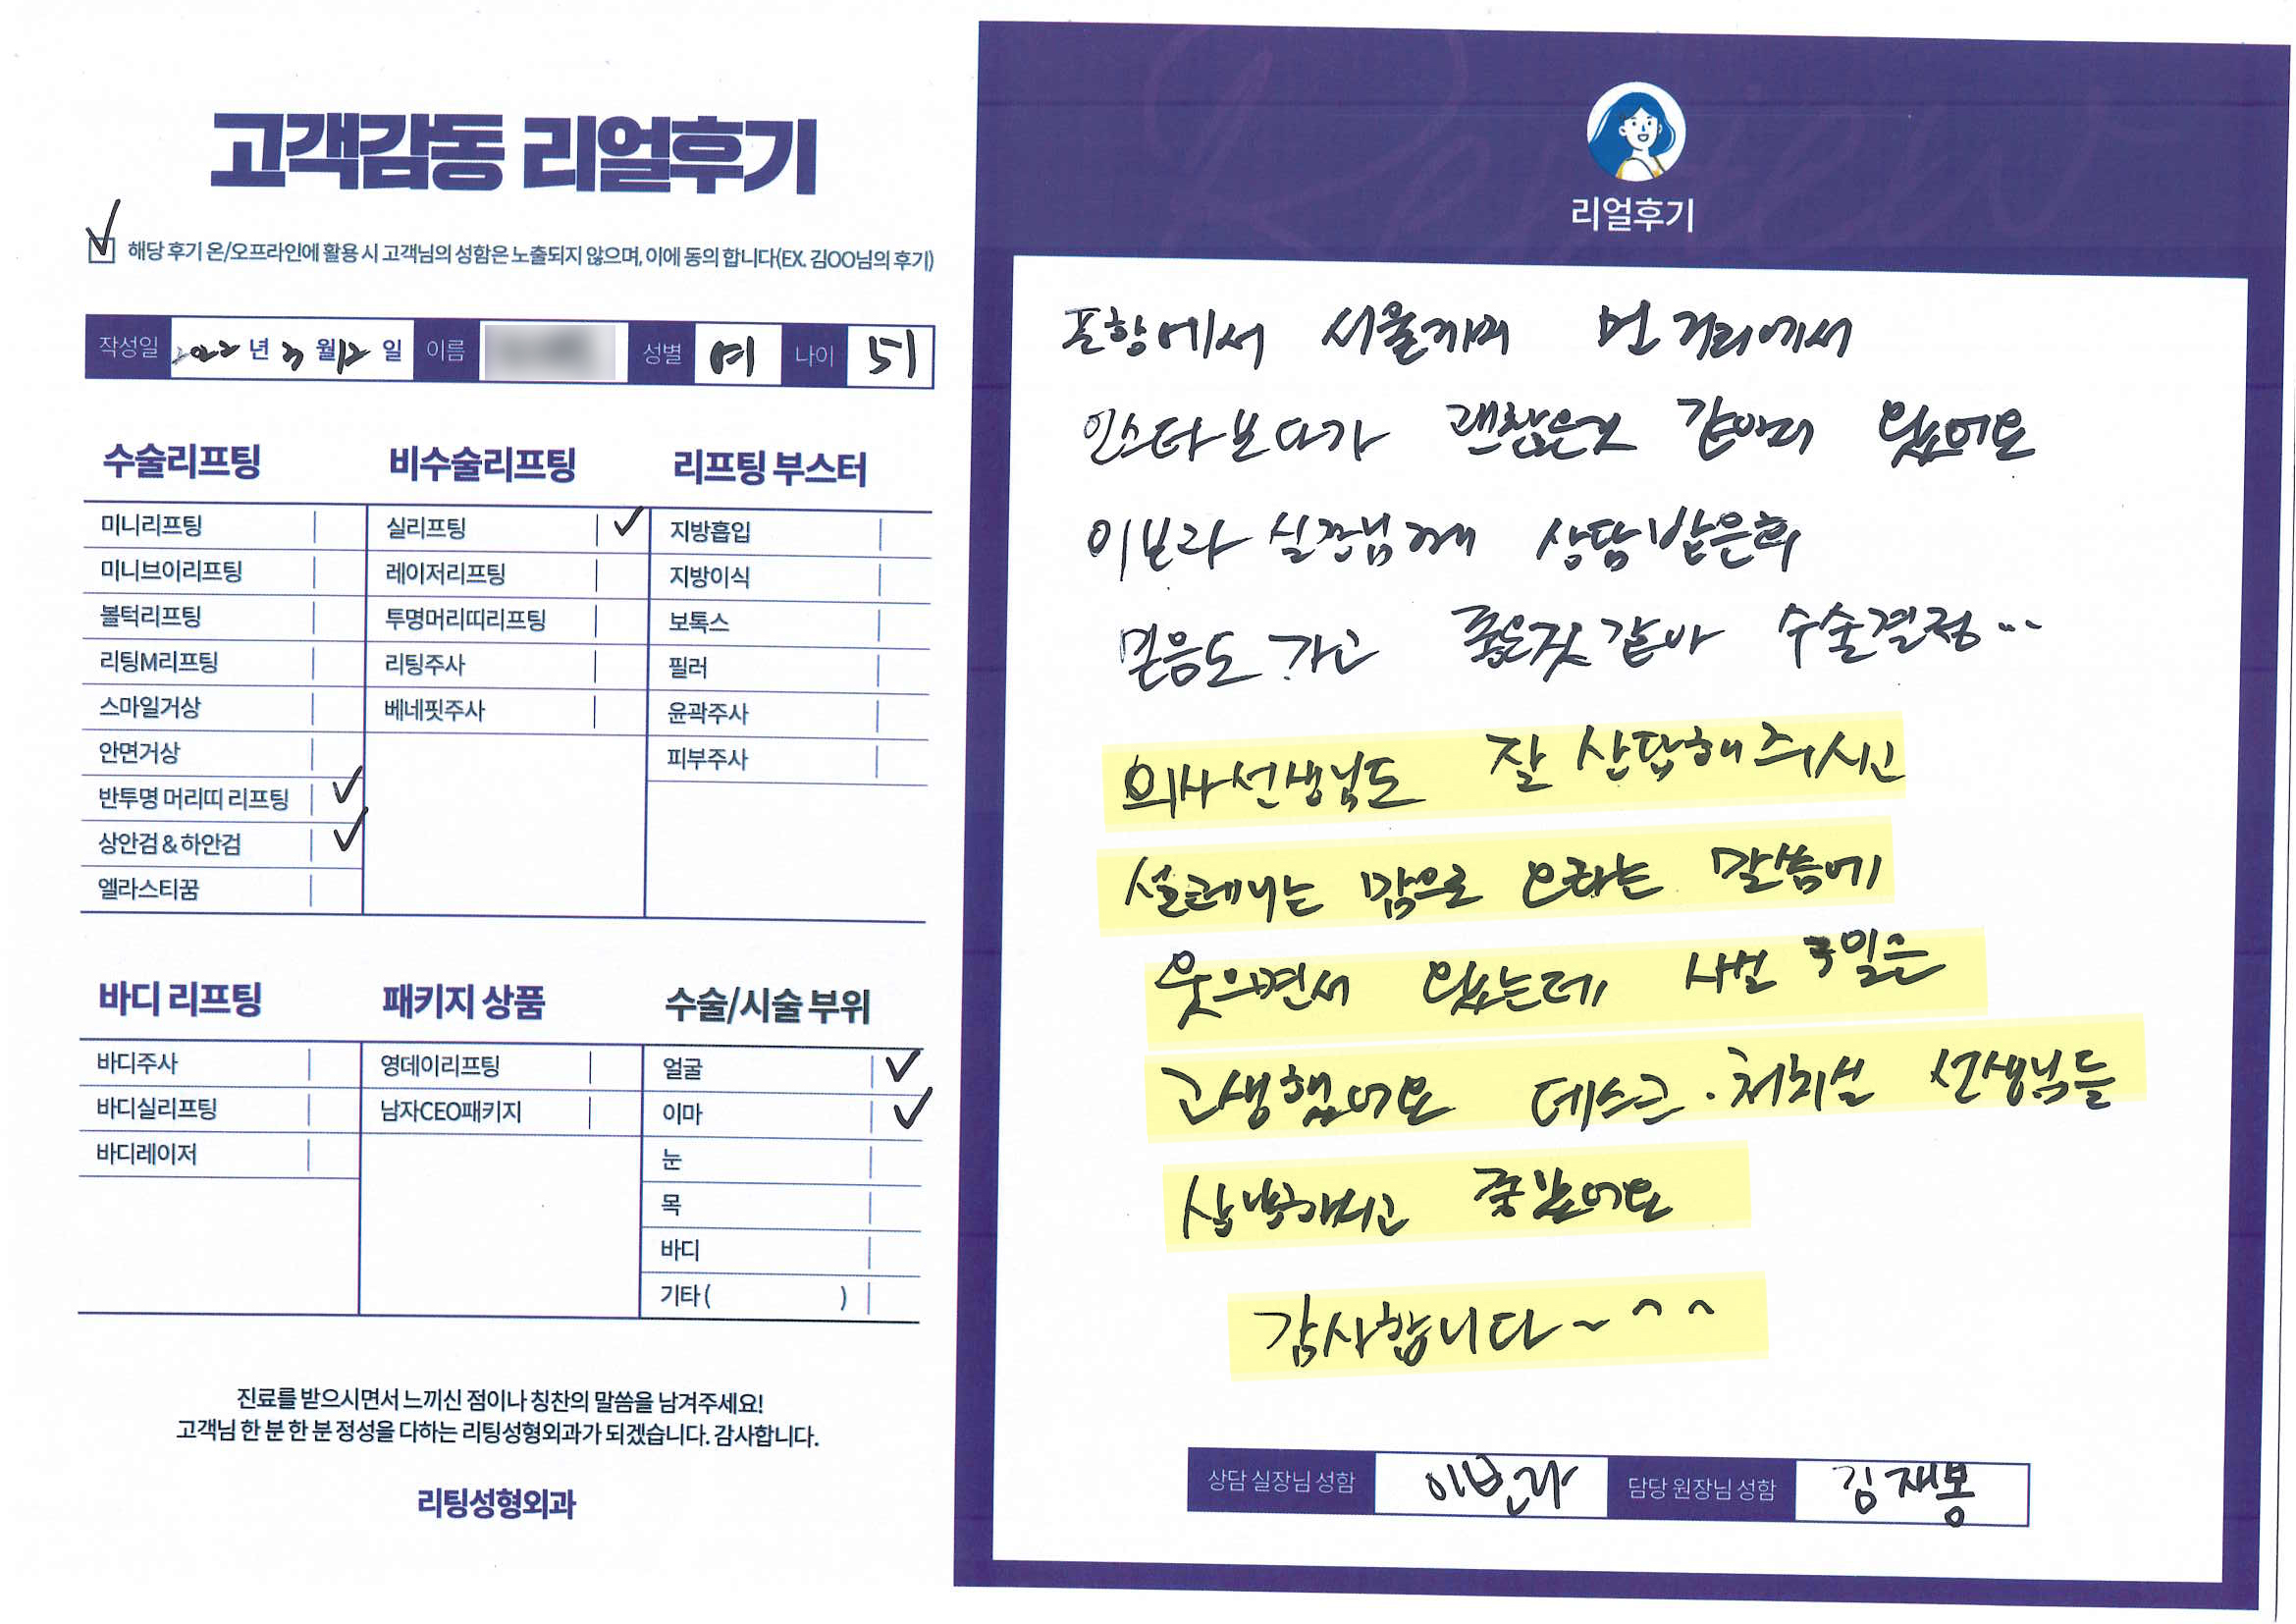 고객감동 리얼후기
해당 후기 온/오프라인에 활용 시 고객님의 성함은 노출되지 않으며, 이에 동의 합니다(EX. 김OO님의 후기)
작성일 2022 년 3 월 12 일 이름 성별 여 나이 51
수술리프팅
미니리프팅
미니브이리프팅
볼턱리프팅
리팅M리프팅
스마일거상
안면거상
반투명 머리띠 리프팅
상안검 & 하안검
엘라스티꿈
비수술리프팅
실리프팅
레이저리프팅
투명머리띠리프팅
리팅주사
베네핏주사
리프팅 부스터
지방흡입
지방이식
보톡스
필러
윤곽주사
피부주사
바디 리프팅
바디주사
바디실리프팅
바디레이저
패키지 상품
영데이리프팅
남자CEO패키지
수술/시술 부위
얼굴
이마
눈
목
바디
기타 ( )
진료를 받으시면서 느끼신 점이나 칭찬의 말씀을 남겨주세요!
고객님 한 분 한 분 정성을 다하는 리팅성형외과가 되겠습니다. 감사합니다.
리팅성형외과
Review
리얼후기
포항에서 서울까지 먼 거리에서
인스타보다가 괜찮은것 같아서 왔어요
이보라 실장님께 상담받은후
믿음도 가고 좋은것 같아 수술결정...
의사선생님도 잘 상담해주시고
설레이는 맘으로 오라는 말씀에
웃으면서 왔는데, 3일은
고생했어요 데스크·처치실 선생님들
상냥하시고 좋았어요
감사합니다~ ^^
상담 실장님 성함 이보라 담당 원장님 성함 김재봉